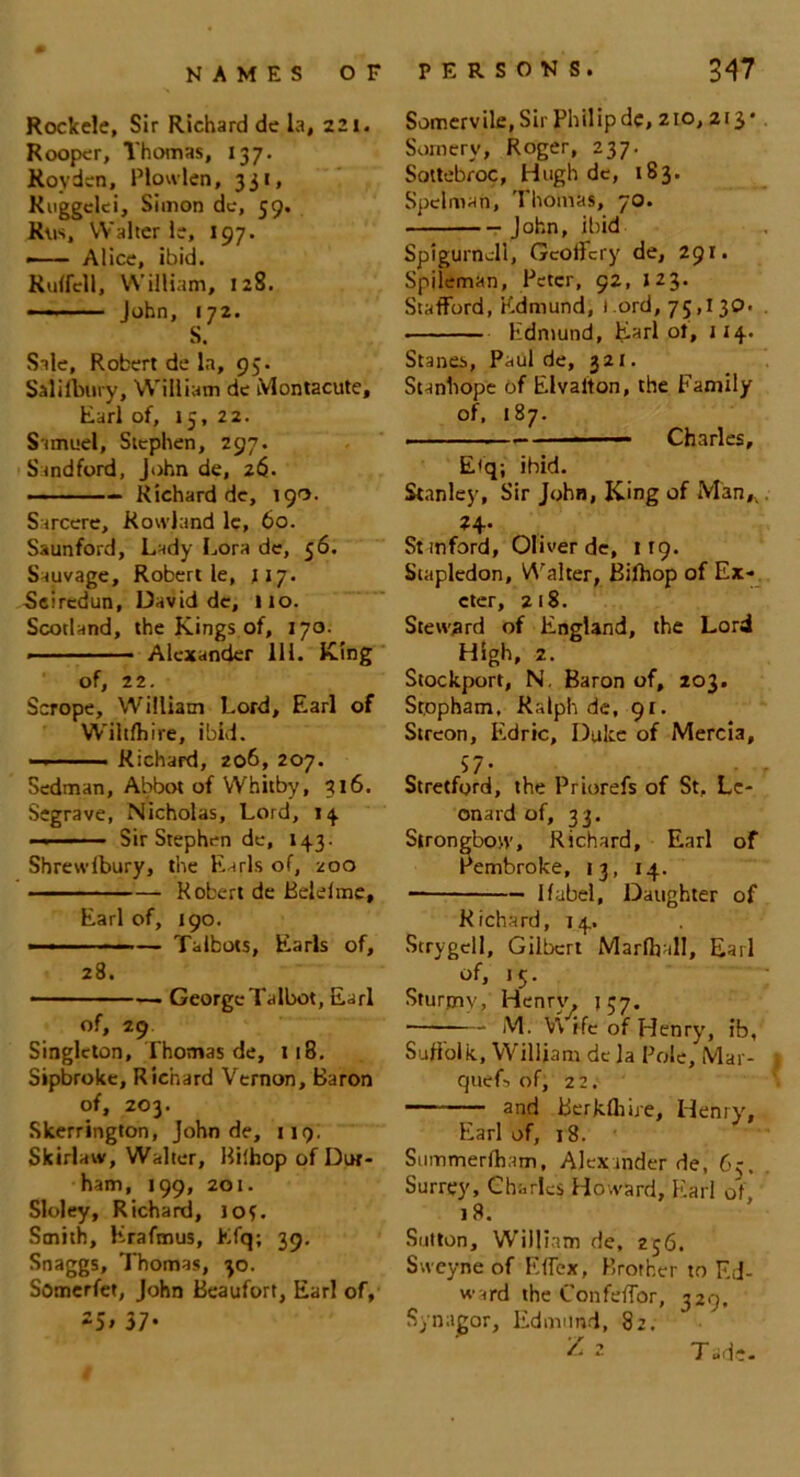 NAMES OF PERSONS. 347
Rockele, Sir Richard de la, 221.
Rooper, Thomas, 137.
Royden, Plowlen, 331,
Ruggelei, Simon de, 59.
Rus, Walter le, 197.
—— Alice, ibid.
Ruſſell, William, 128.
——— John, 172.
S.
Sale, Robert de la, 95.
Saliſbury, William de Montacute,
Earl of, 15, 22.
Samuel, Stephen, 297.
Sandford, John de, 26.
———— Richard de, 190.
Sarcere, Rowland le, 60.
Saunford, Lady Lora de, 56.
Sauvage, Robert le, 117.
Sciredun, David de, 110.
Scotland, the Kings of, 170.
———— Alexander III. King
of, 22.
Scrope, William Lord, Earl of
Wiltſhire, ibid.
——— Richard, 206, 207.
Sedman, Abbot of Whitby, 316.
Segrave, Nicholas, Lord, 14
——— Sir Stephen de, 143.
Shrewſbury, the Earls of, 200
————— Robert de Beleſme,
Earl of, 190.
————— Talbots, Earls of,
28.
————— George Talbot, Earl
of, 29
Singleton, Thomas de, 118.
Sipbroke, Richard Vernon, Baron
of, 203.
Skerrington, John de, 119.
Skirlaw, Walter, Biſhop of Dur-
ham, 199, 201.
Sloley, Richard, 105.
Smith, Eraſmus, Eſq; 39.
Snaggs, Thomas, 30.
Somerſet, John Beaufort, Earl of,
25, 37.
Somervile, Sir Philip de, 210, 213.
Somery, Roger, 237.
Sottebroc, Hugh de, 183.
Spelman, Thomas, 70.
———— John, ibid
Spigurnell, Geoffery de, 291.
Spileman, Peter, 92, 123.
Stafford, Edmund, Lord, 75, 130.
———— Edmund, Earl of, 114.
Stanes, Paul de, 321.
Stanhope of Elvaſton, the Family
of, 187.
————— Charles,
Eſq; ibid.
Stanley, Sir John, King of Man,
24.
Stinford, Oliver de, 119.
Stapledon, Walter, Biſhop of Ex-
eter, 218.
Steward of England, the Lord
High, 2.
Stockport, N. Baron of, 203.
Stopham, Ralph de, 91.
Streon, Edric, Duke of Mercia,
57.
Stretford, the Prioreſs of St. Le-
onard of, 33.
Strongbow, Richard, Earl of
Pembroke, 13, 14.
————— Iſabel, Daughter of
Richard, 14.
Strygell, Gilbert Marſhall, Earl
of, 15.
Sturmy, Henry, 157.
——— M. Wife of Henry, ib,
Suffolk, William de la Pole, Mar-
queſs of, 22.
——— and Berkſhire, Henry,
Earl of, 18.
Summerſham, Alexander de, 65.
Surrey, Charles Howard, Earl of,
18.
Sutton, William de, 256.
Sweyne of Eſſex, Brother to Ed-
ward the Confeſſor, 329.
Synagor, Edmund, 82.
Z 2 Tade-